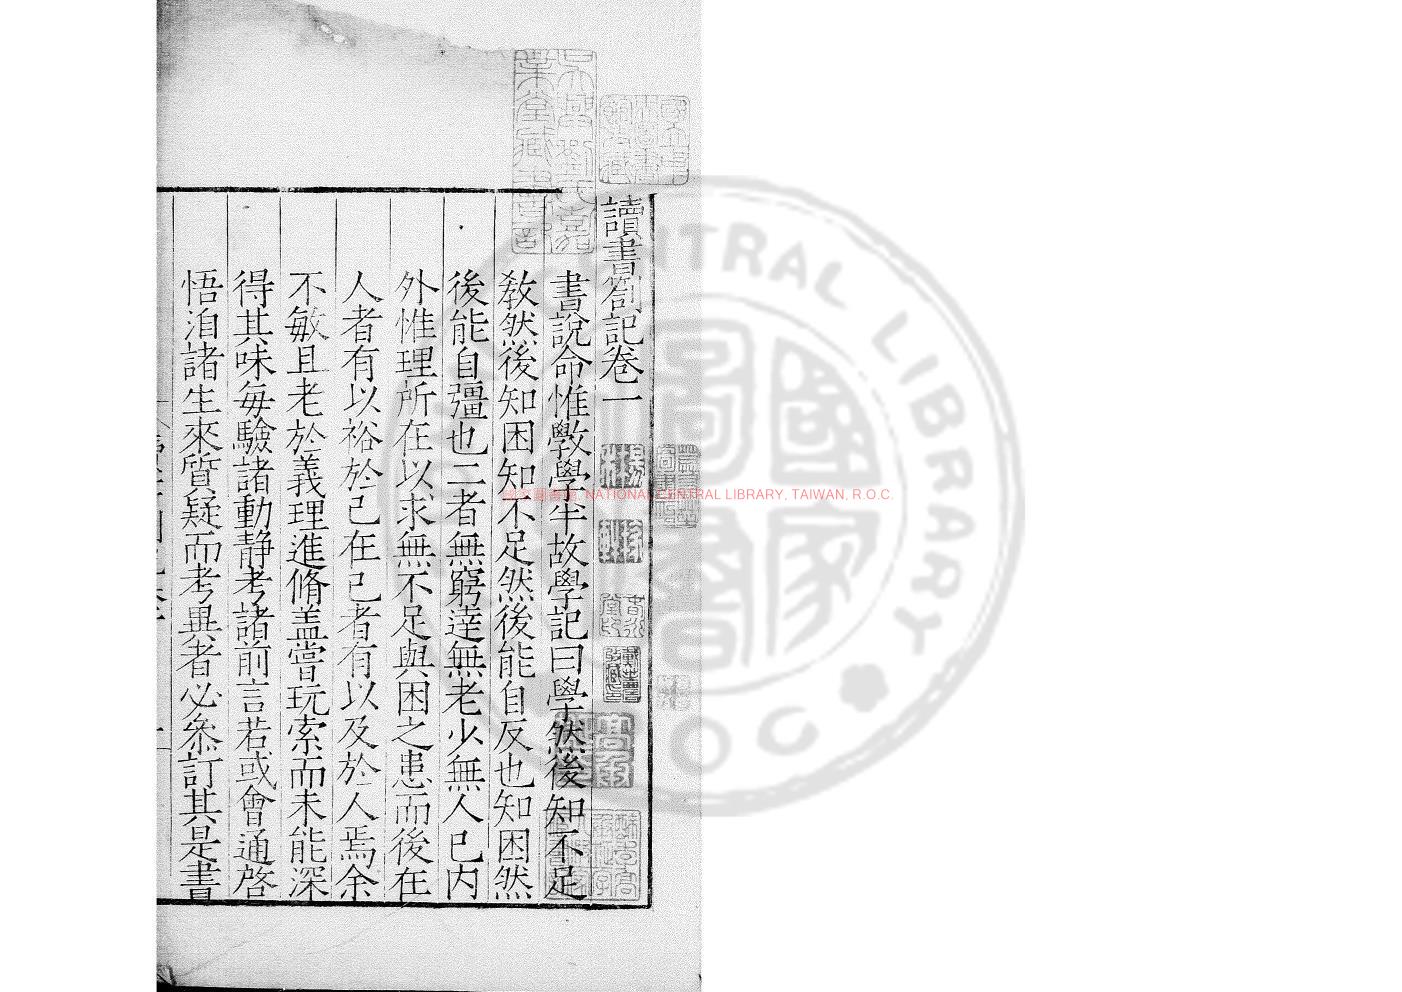 讀書劄記卷一
書說命惟斆學半故學記曰學然後知不足
敎然後知困知不足然後能自反也知困然
後能自彊也二者無窮達無老少無人已内
外惟理所在以求無不足與困之患而後在
人者有以裕於己在己者有以及於人焉余
不敏且老於義理進脩盖嘗玩索而未能深
得其味每驗諸動靜考諸前言若或會通啓
悟洎諸生來質疑而考異者必叅訂其是書
國立中央圖書館收藏
國家圖書館
NATIONAL CENTRAL LIBRARY
ROC
國家圖書館, NATIONAL CENTRAL LIBRARY, TAIWAN, R.O.C.